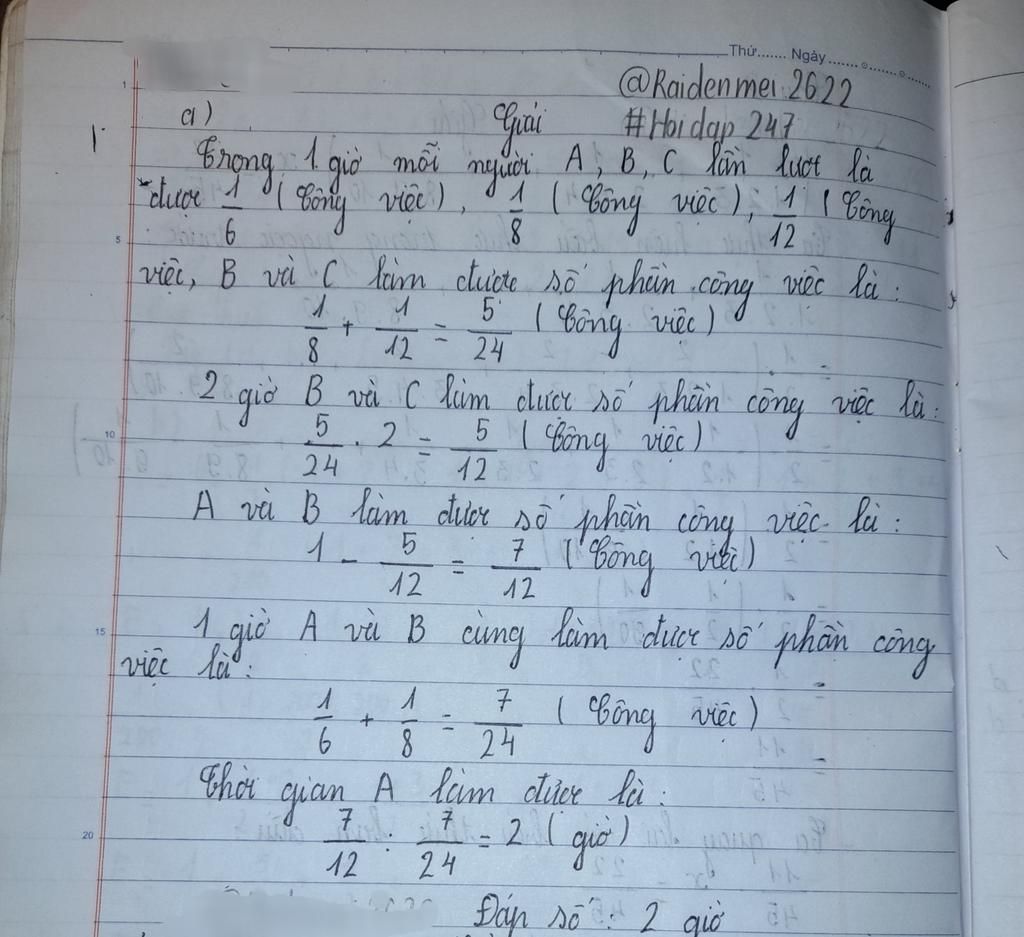 Thứ....... Ngày
@Raidenmei2622
a) Giải #Hoidap247
1
Trong 1 giờ mỗi người A, B, C lần lượt là
được 1/6 (Công việc), 1/8 (Công việc), 1/12 (Công
5
việc, B và C làm được số phần công việc là:
1/8 + 1/12 = 5/24 (Công việc)
2 giờ B và C làm được số phần công việc là:
10
5/24 . 2 = 5/12 (Công việc)
A và B làm được số phần công việc là:
1 - 5/12 = 7/12 (Công việc)
15
1 giờ A và B cùng làm được số phần công
việc là:
1/6 + 1/8 = 7/24 (Công việc)
Thời gian A làm được là:
20
7/12 : 7/24 = 2 (giờ)
Đáp số: 2 giờ